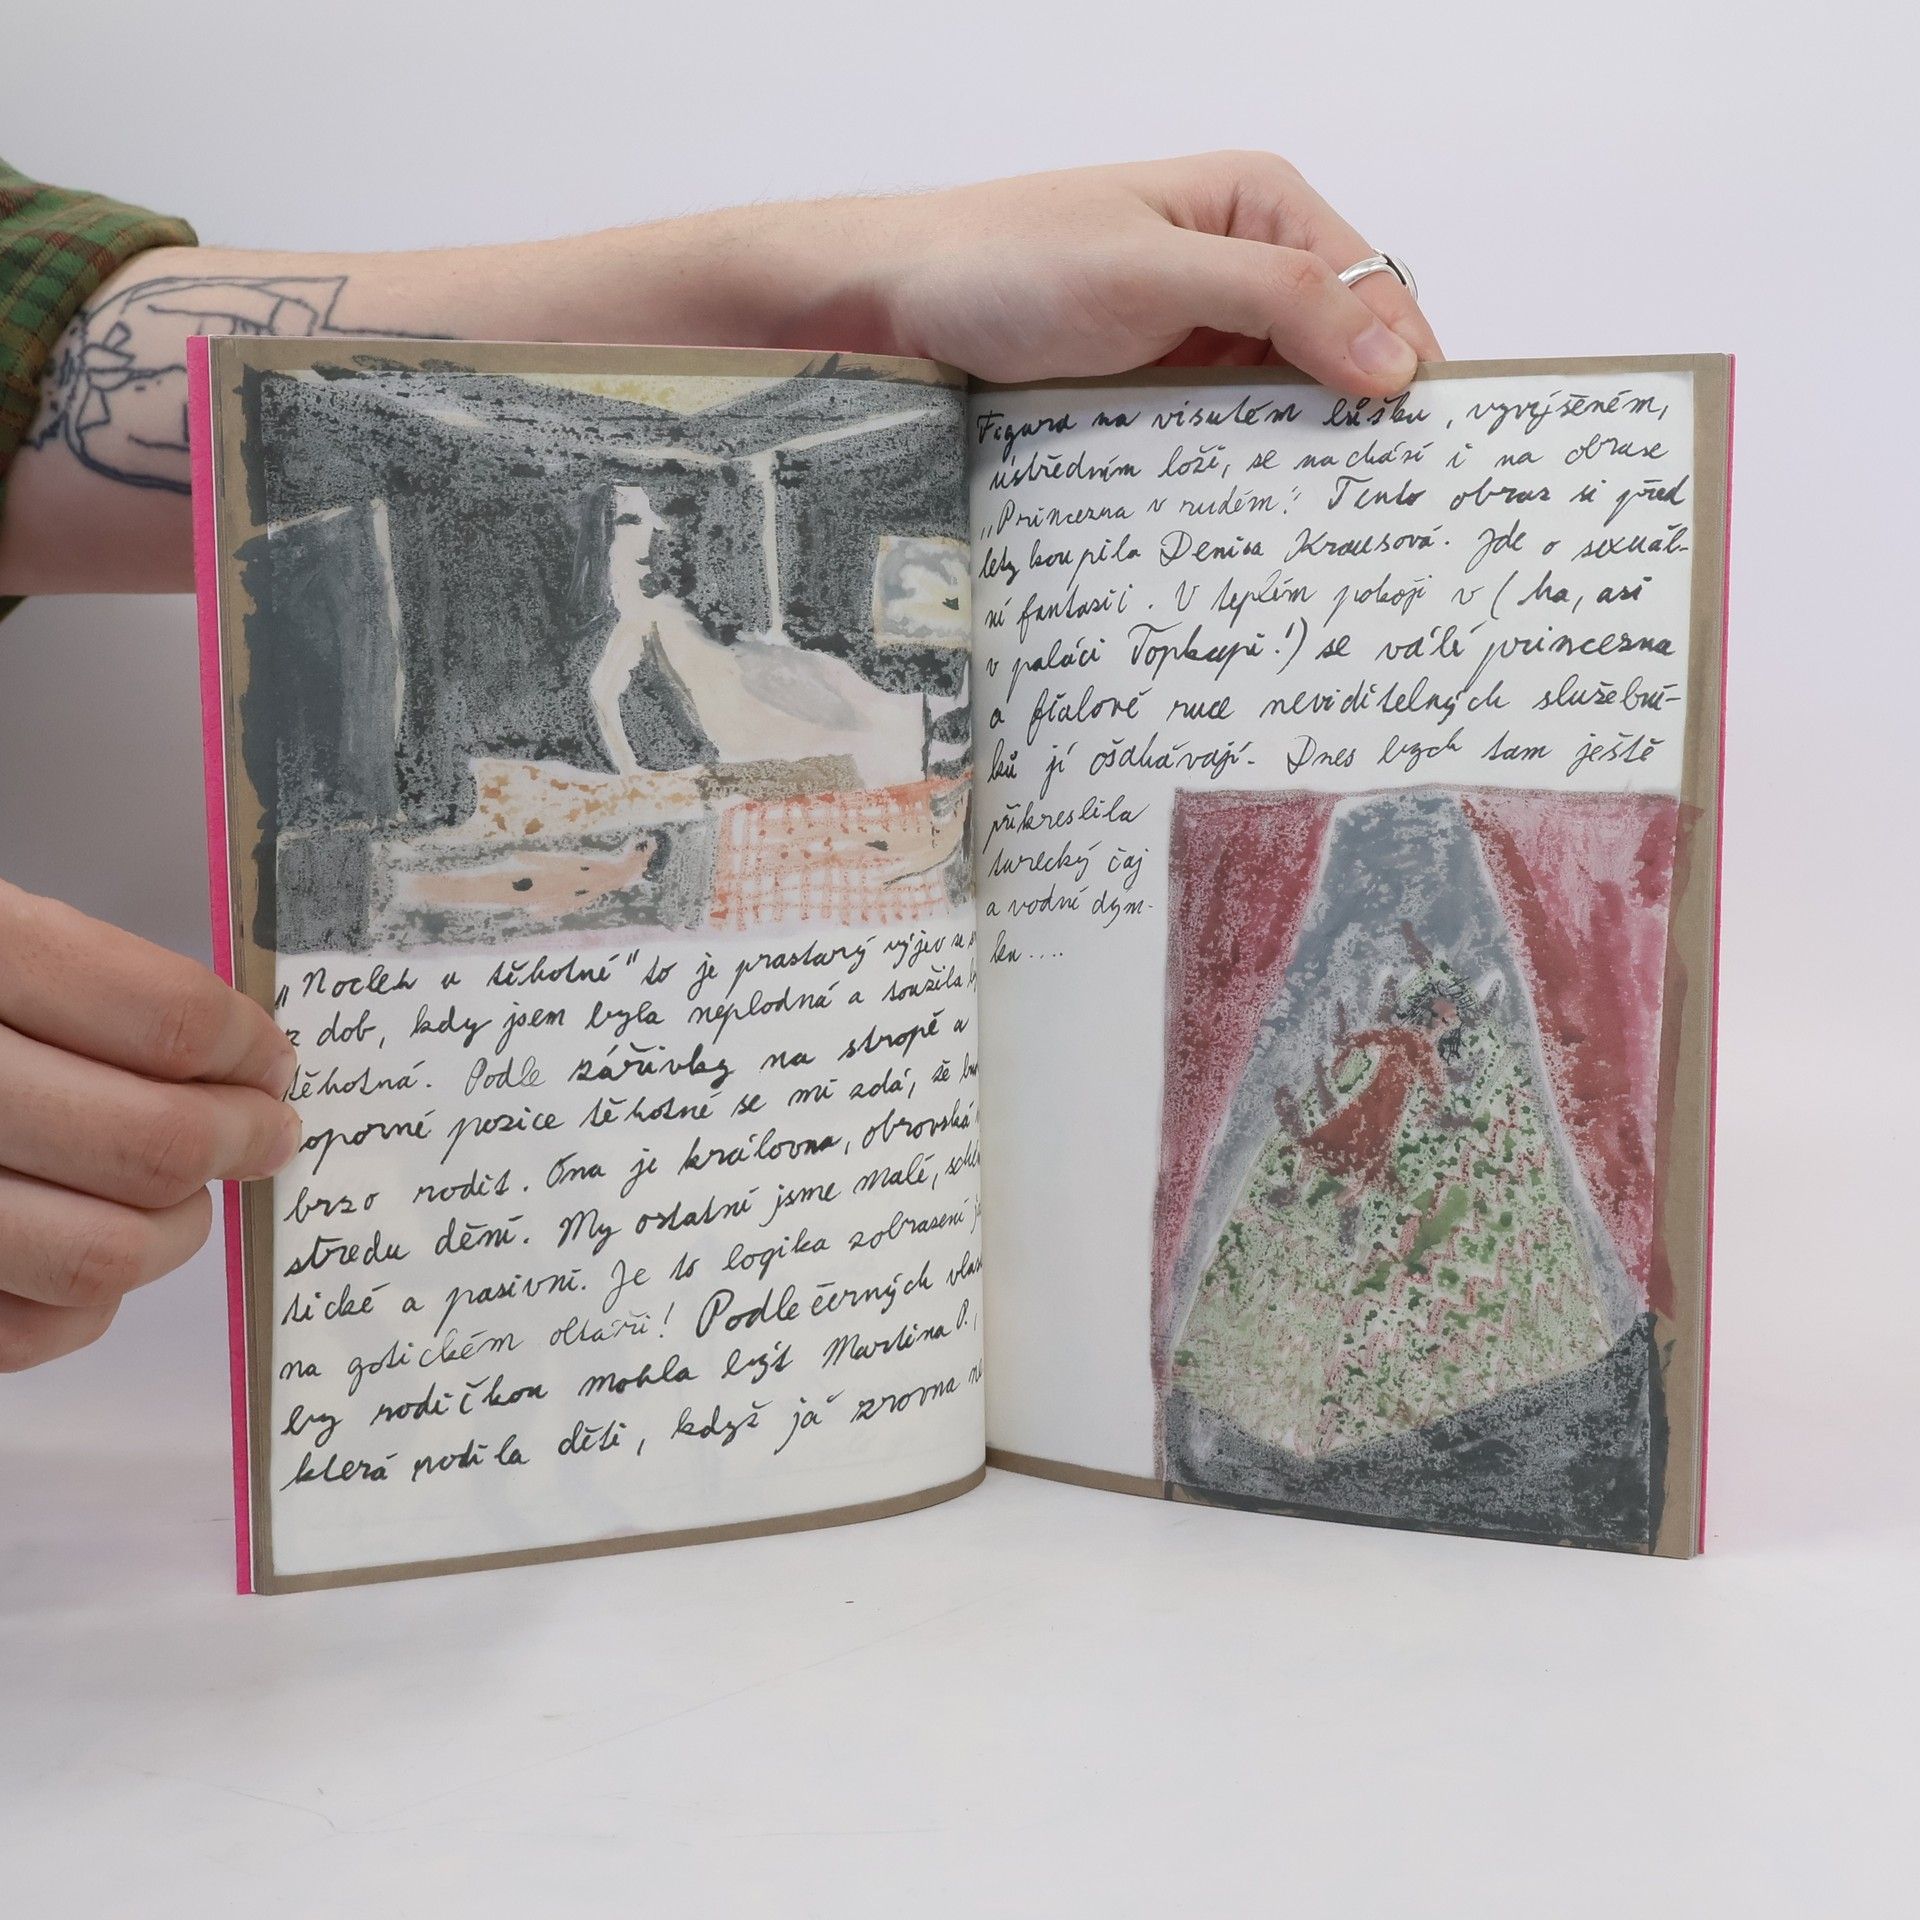 „Nocleh u těhotné" to je prastarý výjev ze
z dob, kdy jsem byla neplodná a toužila
těhotná. Podle zářivky na stropě a
oporné pozice těhotné se mi zdá, že
brzo rodit. Ona je královna, obrovská
středu dění. My ostatní jsme malé,
tické a pasivní. Je to logika zobrazení
na gotickém oltáři! Podle černých
by rodičkou mohla být Martina P.,
která rodila děti, když já zrovna
Figura na visutém lůžku, vyvýšeném,
ústředním loži, se nachází i na obraze
„Princezna v rudém." Tento obraz si před
lety koupila Denisa Krausová. Jde o sexuál-
ní fantazii. V teplém pokoji v (ha, asi
v paláci Topkapi!) se válí princezna
a fialové ruce neviditelných služební-
ků jí ošahávají. Dnes bych tam ještě
přikreslila
turecký čaj
a vodní dým-
ku....